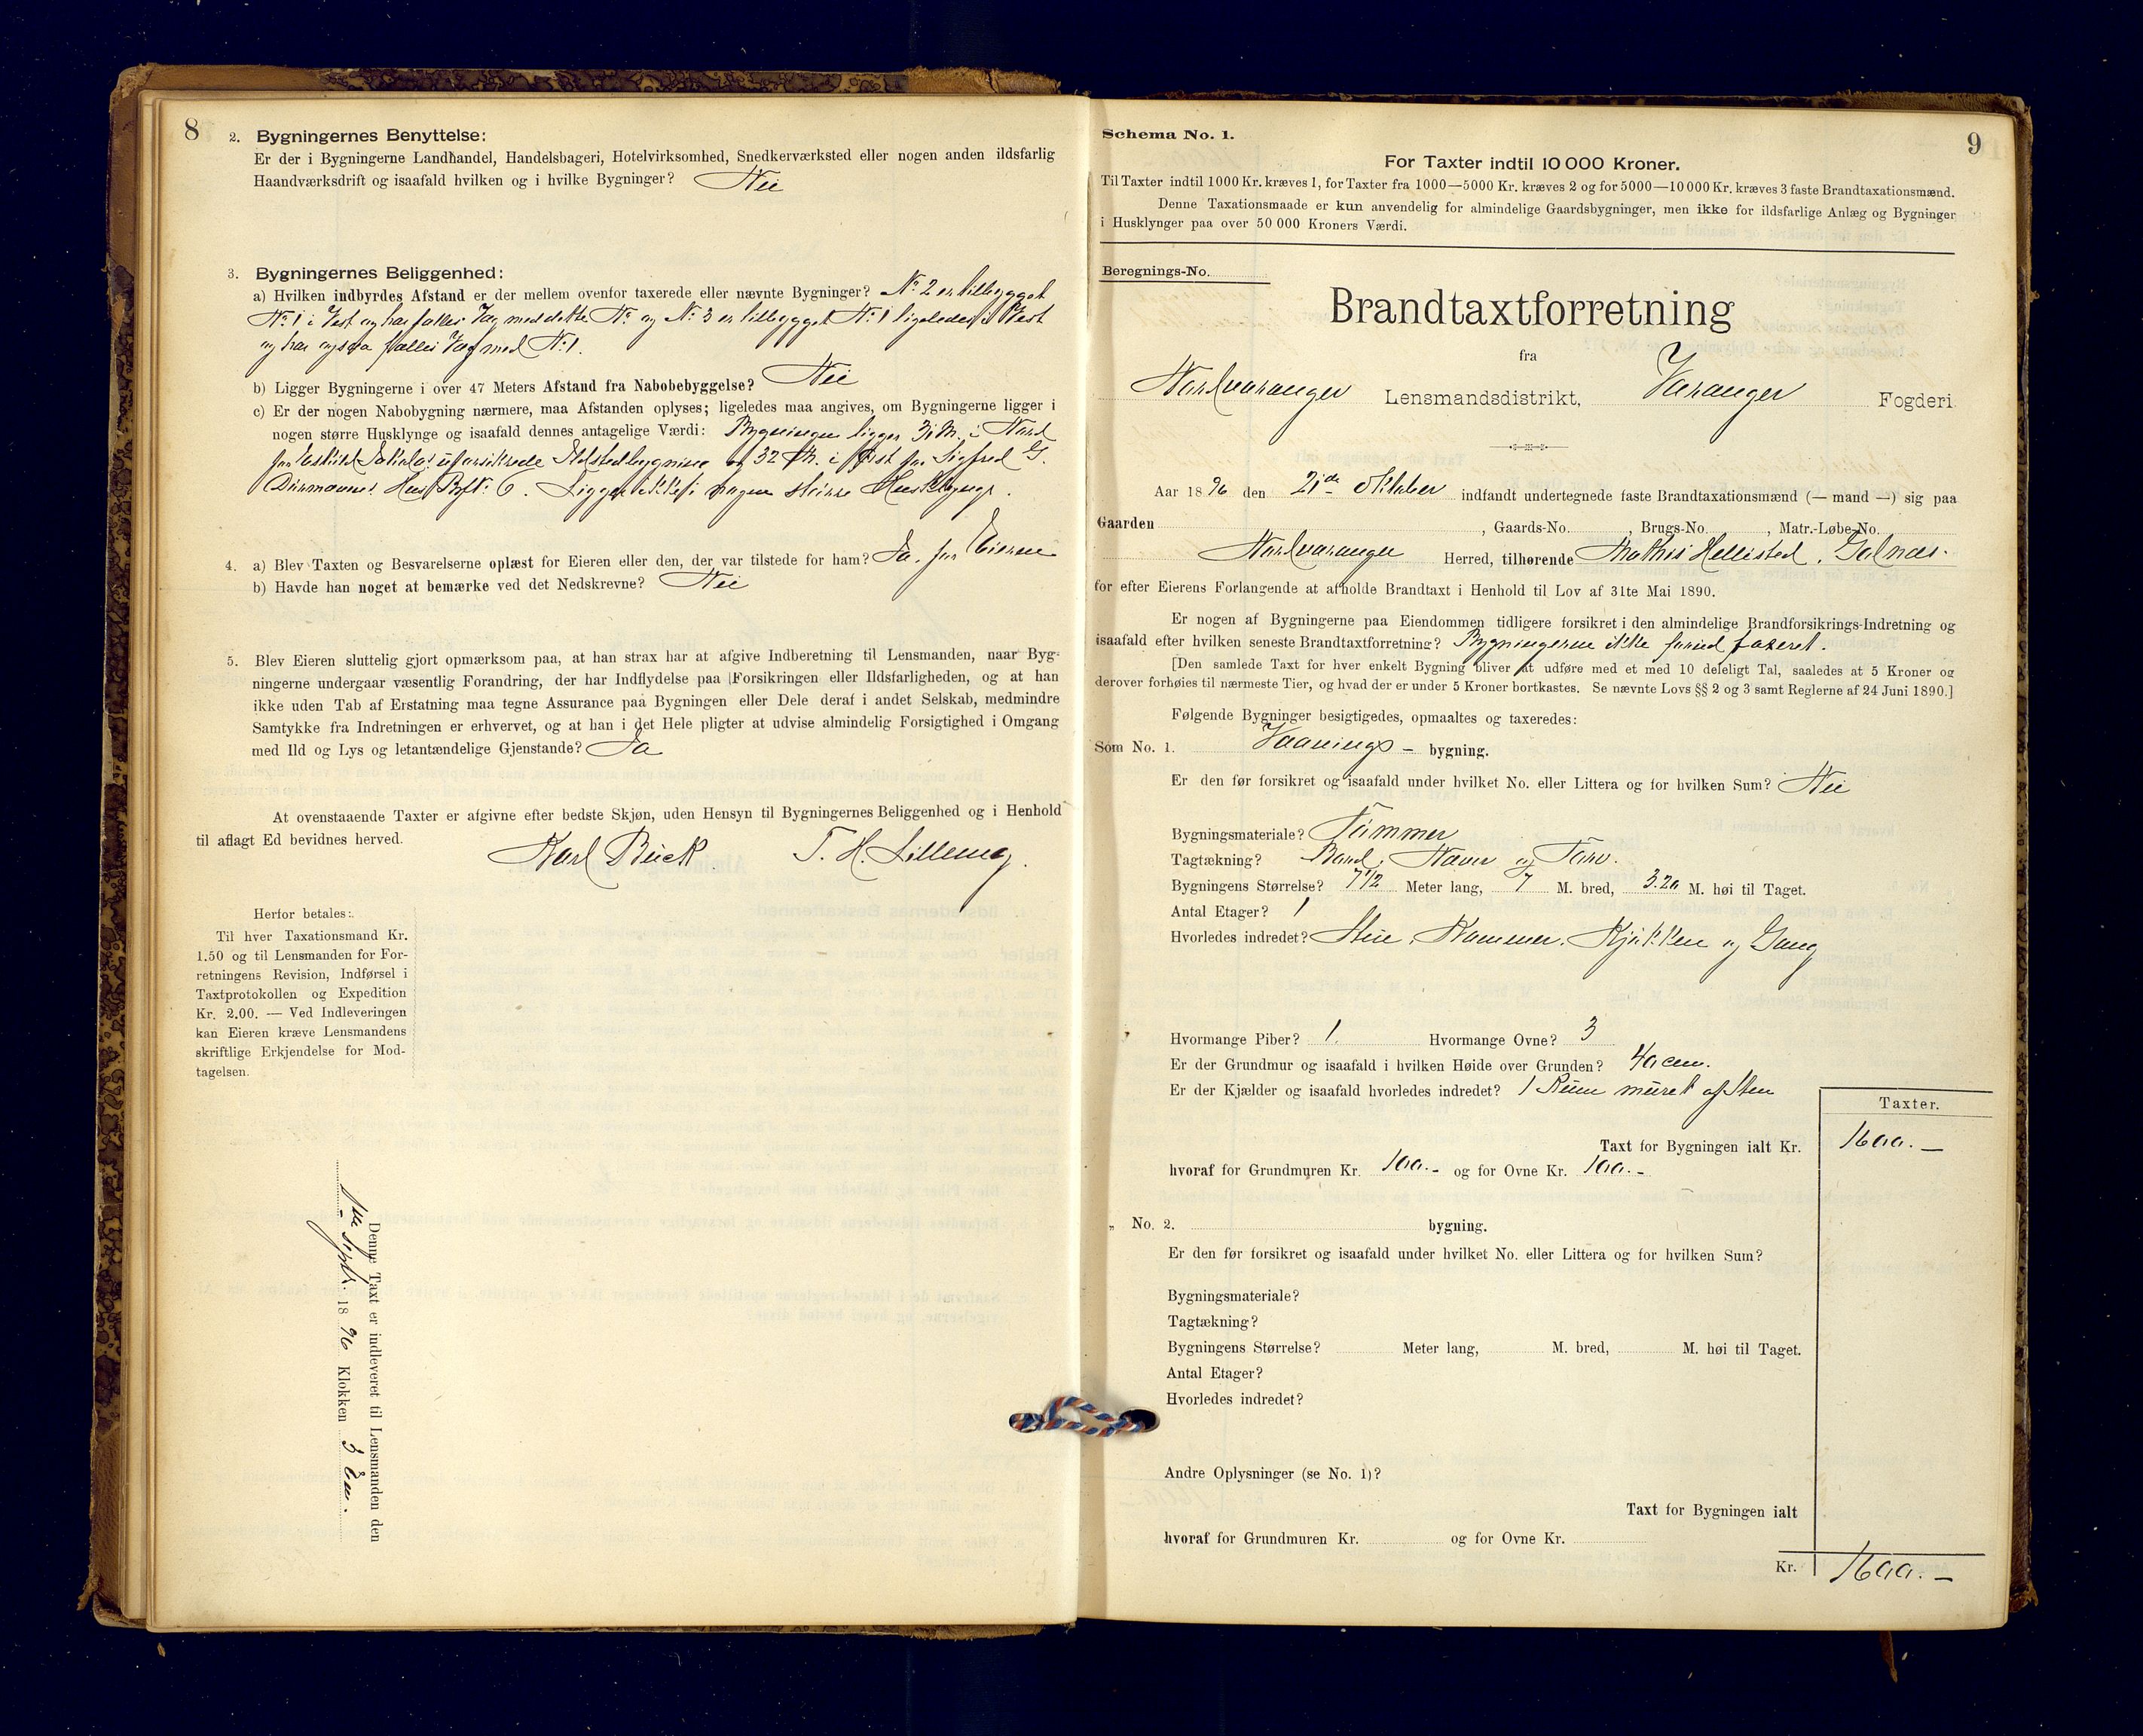 8
2. Bygningernes Benyttelse:
Er der i Bygningerne Landhandel, Handelsbageri, Hotelvirksomhed, Snedkerværksted eller nogen anden ildsfarlig
Haandværksdrift og isaafald hvilken og i hvilke Bygninger? Nei
3. Bygningernes Beliggenhed:
a) Hvilken indbyrdes Afstand er der mellem ovenfor taxerede eller nævnte Bygninger? No 2 er tilbygget
No 1 i Vest og har fælles Væg med dette No og No 3 er tilbygget No 1 ligeledes i Vest
og har ogsaa fælles Væg med No 1.
b) Ligger Bygningerne i over 47 Meters Afstand fra Nabobebyggelse? Nei
c) Er der nogen Nabobygning nærmere, maa Afstanden oplyses; ligeledes maa angives, om Bygningerne ligger i
nogen større Husklynge og isaafald dennes antagelige Værdi: Bygningen ligger M. i Nord
for uforsikrede Ildstedbygning og 32 M. i for Sigfred G.
Hus No 6. Ligger ikke i nogen större Husklynge.
4. a) Blev Taxten og Besvarelserne oplæst for Eieren eller den, der var tilstede for ham? Ja, for Eieren
b) Havde han noget at bemærke ved det Nedskrevne? Nei
5. Blev Eieren sluttelig gjort opmærksom paa, at han strax har at afgive Indberetning til Lensmanden, naar Byg-
ningerne undergaar væsentlig Forandring, der har Indflydelse paa Forsikringen eller Ildsfarligheden, og at han
ikke uden Tab af Erstatning maa tegne Assurance paa Bygningen eller Dele deraf i andet Selskab, medmindre
Samtykke fra Indretningen er erhvervet, og at han i det Hele pligter at udvise almindelig Forsigtighed i Omgang
med Ild og Lys og letantændelige Gjenstande? Ja
At ovenstaaende Taxter er afgivne efter bedste Skjøn, uden Hensyn til Bygningernes Beliggenhed og i Henhold
til aflagt Ed bevidnes herved.
Karl Buck T. H. Lillemo
Herfor betales:
Til hver Taxationsmand Kr.
1.50 og til Lensmanden for For-
retningens Revision, Indførsel i
Taxtprotokollen og Expedition
Kr. 2.00. — Ved Indleveringen
kan Eieren kræve Lensmandens
skriftlige Erkjendelse for Mod-
tagelsen.
Denne Taxt er indleveret til Lensmanden den
Septr. 1896 Klokken 3 Em.
9
Schema No. 1.
For Taxter indtil 10 000 Kroner.
Til Taxter indtil 1000 Kr. kræves 1, for Taxter fra 1000—5000 Kr. kræves 2 og for 5000—10 000 Kr. kræves 3 faste Brandtaxationsmænd.
Denne Taxationsmaade er kun anvendelig for almindelige Gaardsbygninger, men ikke for ildsfarlige Anlæg og Bygninger
i Husklynger paa over 50 000 Kroners Værdi.
Beregnings-No.
Brandtaxtforretning
fra
Nordvaranger Lensmandsdistrikt, Varanger Fogderi
Aar 1896 den 21de Oktober indfandt undertegnede faste Brandtaxationsmænd (— mand —) sig paa
Gaarden , Gaards-No. , Brugs-No. , Matr.-Løbe-No.
Nordvaranger Herred, tilhørende Mathis Hellisted, Golnæs.
for efter Eierens Forlangende at afholde Brandtaxt i Henhold til Lov af 31te Mai 1890.
Er nogen af Bygningerne paa Eiendommen tidligere forsikret i den almindelige Brandforsikrings-Indretning og
isaafald efter hvilken seneste Brandtaxtforretning? Bygningerne ikke forud taxeret.
[Den samlede Taxt for hver enkelt Bygning bliver at udføre med et med 10 deleligt Tal, saaledes at 5 Kroner og
derover forhøies til nærmeste Tier, og hvad der er under 5 Kroner bortkastes. Se nævnte Lovs §§ 2 og 3 samt Reglerne af 24 Juni 1890.]
Følgende Bygninger besigtigedes, opmaaltes og taxeredes:
Som No. 1. Vaanings- bygning.
Er den før forsikret og isaafald under hvilket No. eller Littera og for hvilken Sum? Nei
Bygningsmateriale? Tömmer
Tagtækning? Bord, Næver og Torv.
Bygningens Størrelse? 7 1/2 Meter lang, 7 M. bred, 3.20 M. høi til Taget.
Antal Etager? 1
Hvorledes indredet? Stue, Kammer, Kjökken og Gang
Hvormange Piber? 1. Hvormange Ovne? 3
Er der Grundmur og isaafald i hvilken Høide over Grunden? 40 cm.
Er der Kjælder og isaafald hvorledes indredet? 1 Rum muret af Sten
Taxter.
Taxt for Bygningen ialt Kr. 1600.—
hvoraf for Grundmuren Kr. 100.- og for Ovne Kr. 100.-
„ No. 2. bygning.
Er den før forsikret og isaafald under hvilket No. eller Littera og for hvilken Sum?
Bygningsmateriale?
Tagtækning?
Bygningens Størrelse? Meter lang, M. bred, M. høi til Taget.
Antal Etager?
Hvorledes indredet?
Andre Oplysninger (se No. 1)?
Taxt for Bygningen ialt
hvoraf for Grundmuren Kr. og for Ovne Kr.
Kr. 1600.—